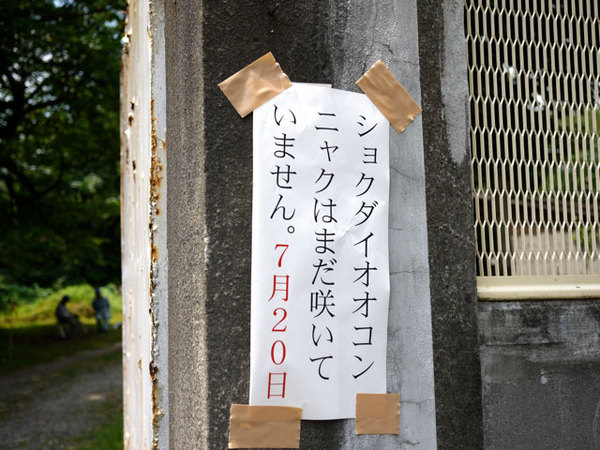 ショクダイオオコン
ニャクはまだ咲いて
いません。7月20日